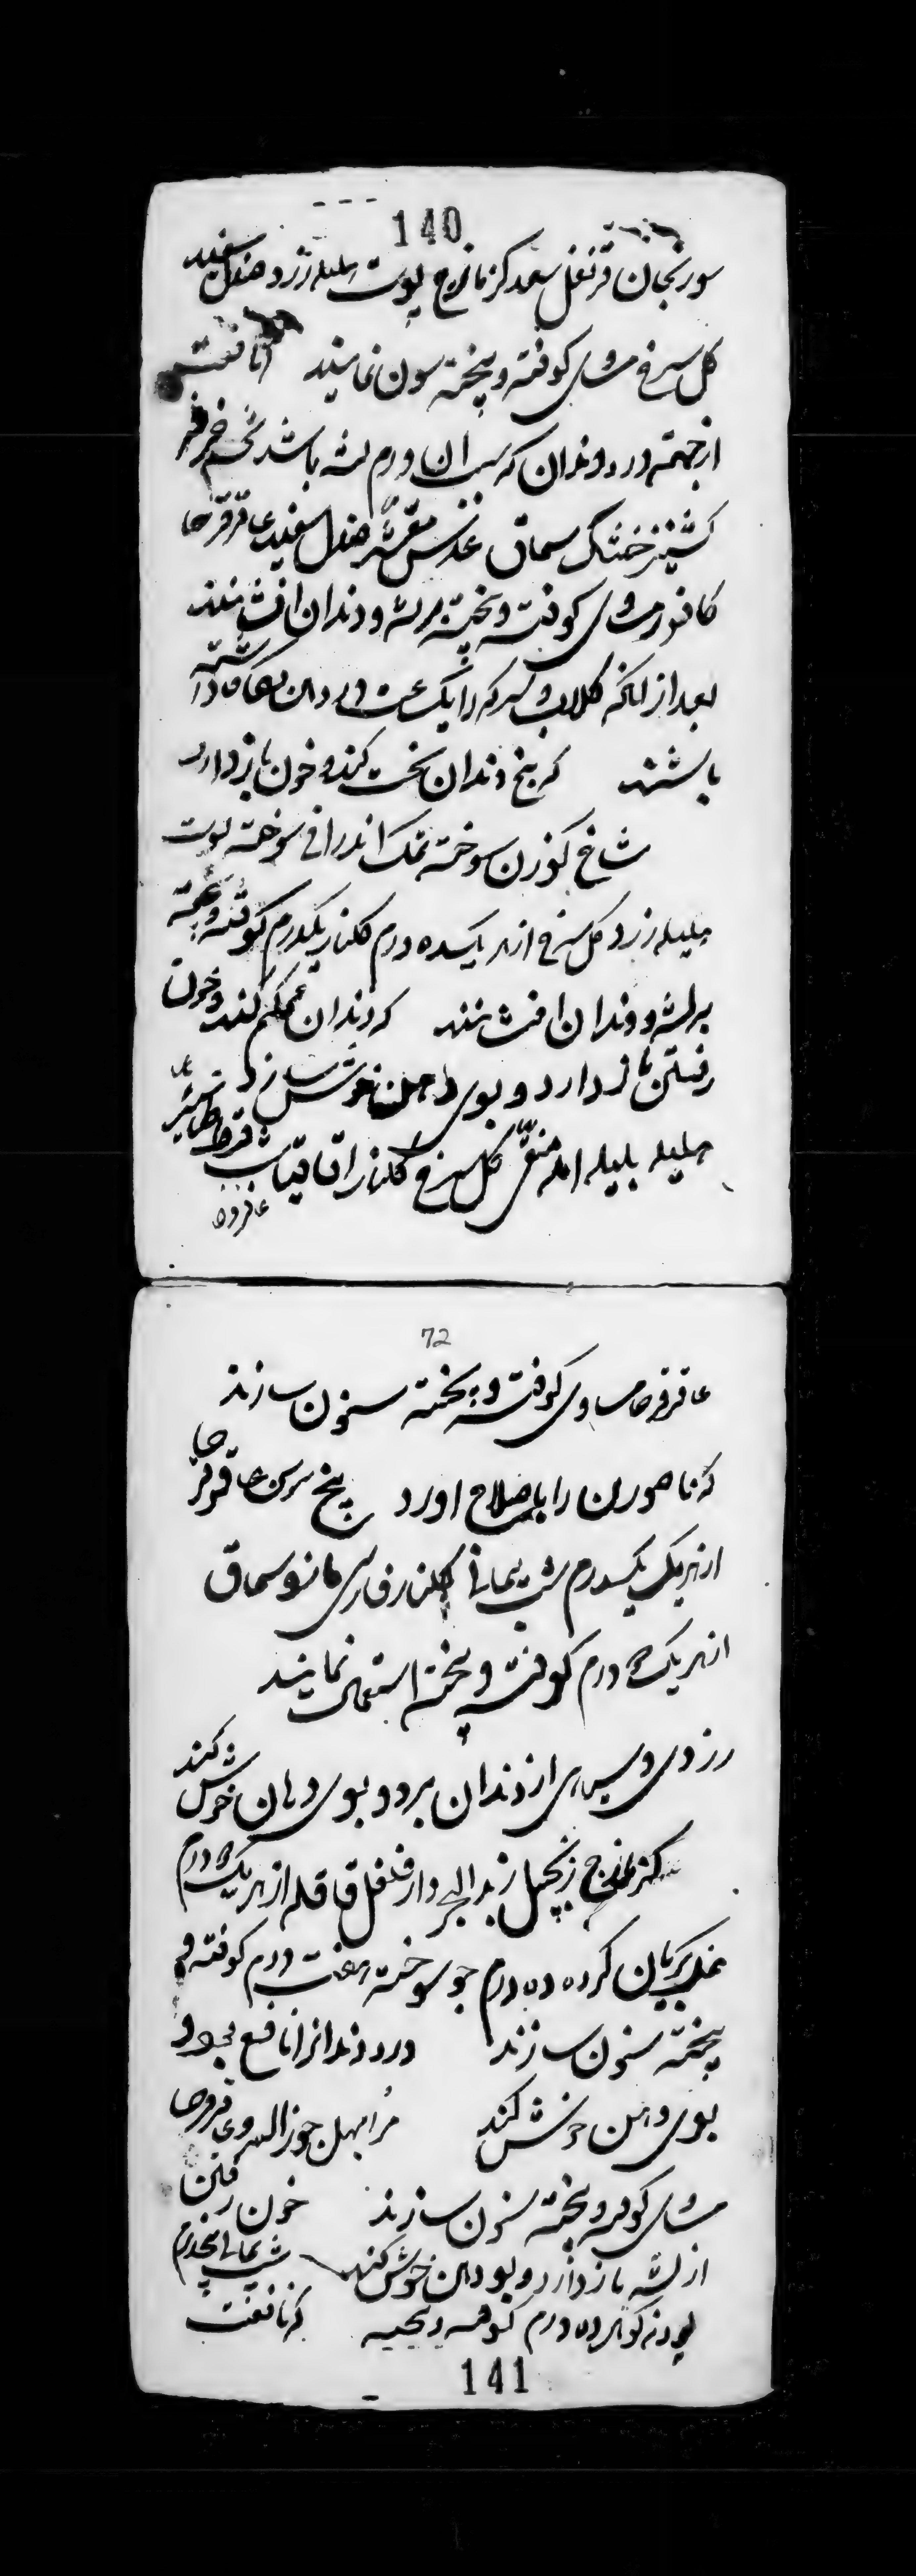 140
سورنجان قرنفل سعد کزمازج پوست هلیله زرد صندل سفید
کل سرخ مساوی کوفته و بیخته سون نمایند نافعست
از جهته درد دندان که بسبب ان ورم لثه باشد تخم خرفه
کشنیز خشک سماق عدس مقشر صندل سفید عاقرقرحا
کافور مساوی کوفته و بیخته بر لثه و دندان افشانند
بعد از انکه کلاب و سرکه را یک ساعت در دهن نگاه داشته
باشند که بیخ دندان سخت کند و خون باز دارد
شاخ کوزن سوخته نمک اندرانی سوخته پوست
هلیله زرد کل سرخ از هر یک ده درم کلنار یکدرم کوفته و بیخته
بر لثه و دندان افشانند که دندان محکم کند و خون
رفتن باز دارد و بوی دهن خوش سازد
هلیله بلیله امله منقی کل سرخ کلنار اقاقیا شب قرط طباشیر
عاقرقرحا
72
عاقرقرحا مساوی کوفته و بیخته سنون سازند
که ناصوران را باصلاح اورد بیخ سوسن عاقرقرحا
از هر یک یکدرم شب یمانی کلنار فارسی مازو سماق
از هر یک درم کوفته و بیخته استعمال نمایند
زردی و سیاهی از دندان برد و بوی دهان خوش کند
کزمازج زنجبیل زبد البحر دارفلفل قاقله از هر یک درم
نمک بریان کرده ده درم جو سوخته هفت درم کوفته و
بیخته سنون سازند درد دندانرا نافع بود و
بوی دهن خوش کند مر ابهل جوز السرو عاقرقرحا
مساوی کوفته و بیخته سنون سازند خون رفتن
از لثه باز دارد و بوی دهن خوش کند شب یمانی پنجدرم
پودنه کوهی ده درم کوفته و بیخته که نافعست
141